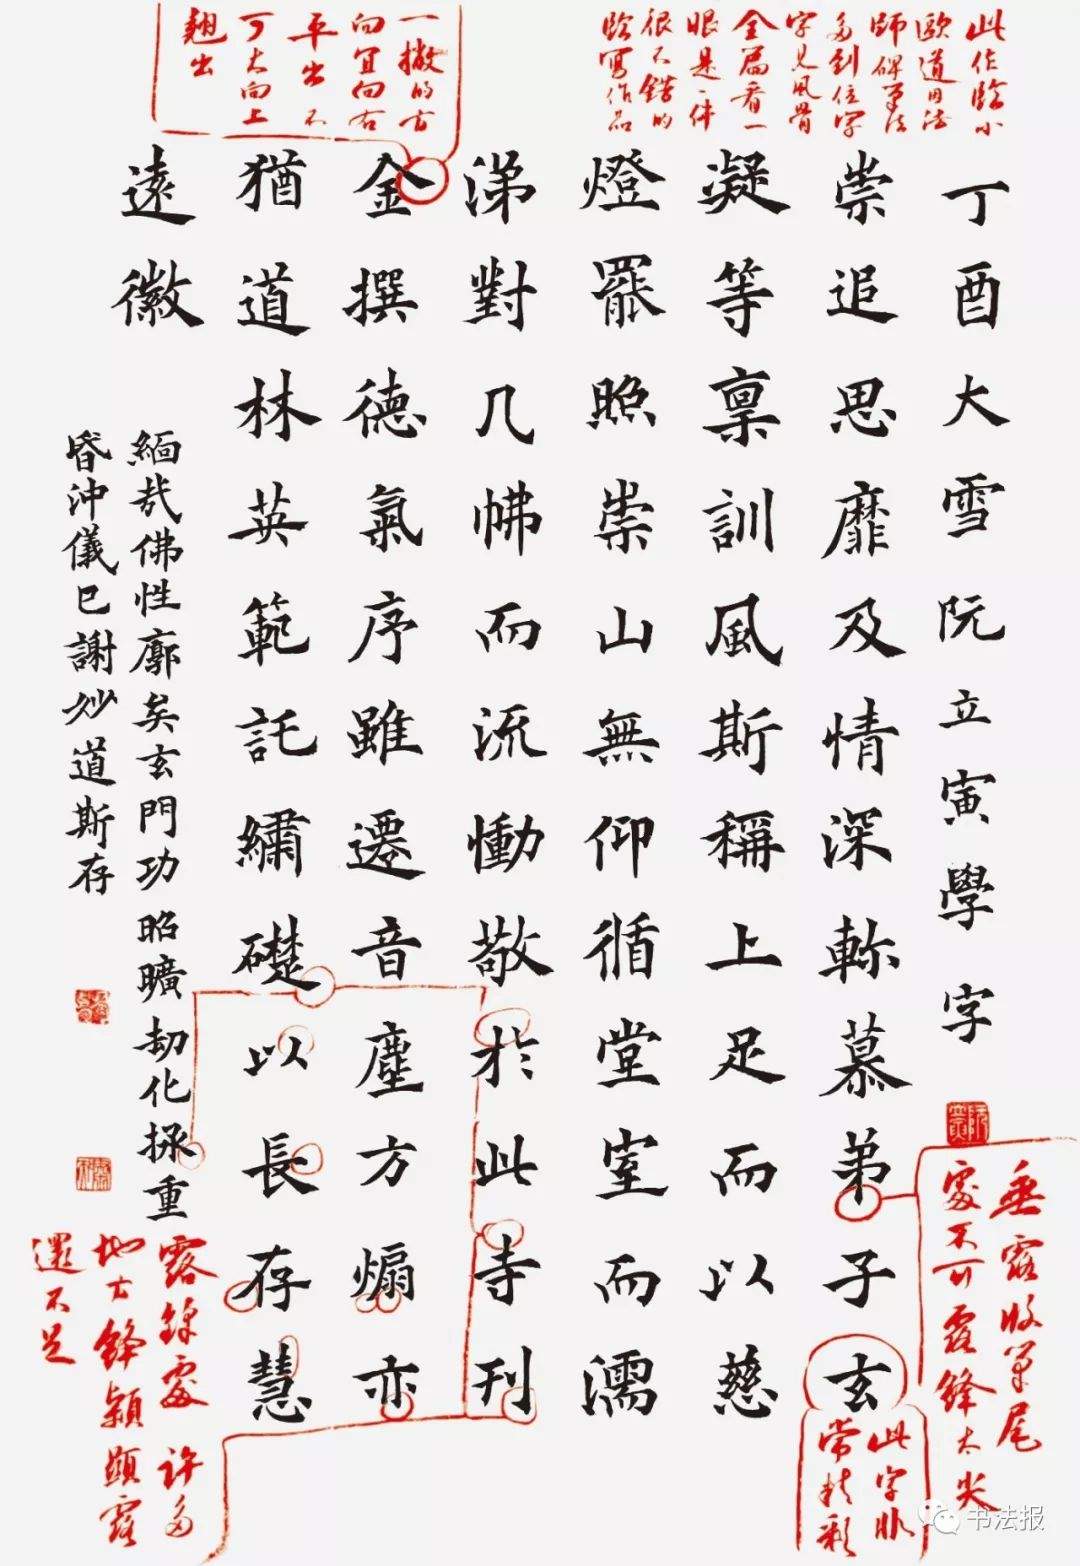 此作臨小
歐道因法
師碑筆法
多到位字
字見風骨
全篇看一
眼是一件
很不錯的
臨寫作品
一撇的方
向宜向右
平出不
可太向上
翹出
丁酉大雪阮立寅學字
崇追思靡及情深輀慕弟子玄
凝等稟訓風斯稱上足而以慈
燈罷照崇山無仰循堂室而濡
涕對几拂而流慟敬於此寺刊
金撰德氣序雖遷音塵方煽亦
猶道林英範託繡礎以長存慧
遠徽
緬哉佛性廓矣玄門功昭曠劫化拯重
昏沖儀已謝妙道斯存
垂露收筆尾
處不可露鋒太尖
此字非
常精彩
露鋒處許多
地方鋒穎顯露
還不足
书法报